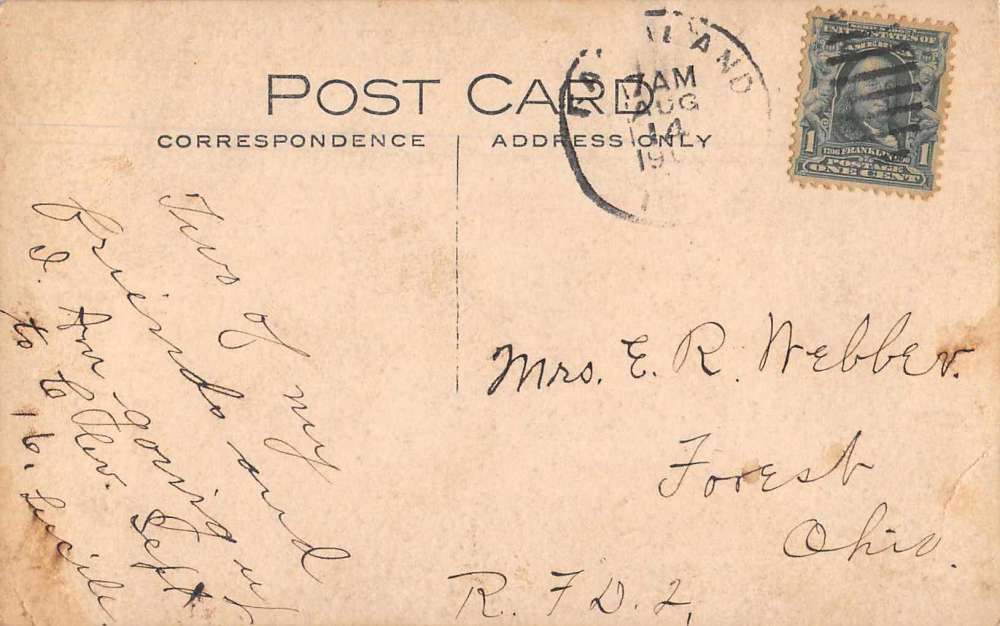 POST CARD
CORRESPONDENCE
ADDRESS ONLY
LAND
7 AM
AUG
14
19
SERIES 1902
UNITED STATES OF
AMERICA
1 FRANKLIN 1
POSTAGE
ONE CENT
Two of my
friends and
I. Am going up
to Clev. Sept.
16. Lucile.
Mrs. E. R. Webber.
Forest
Ohio
R. F D. 2,